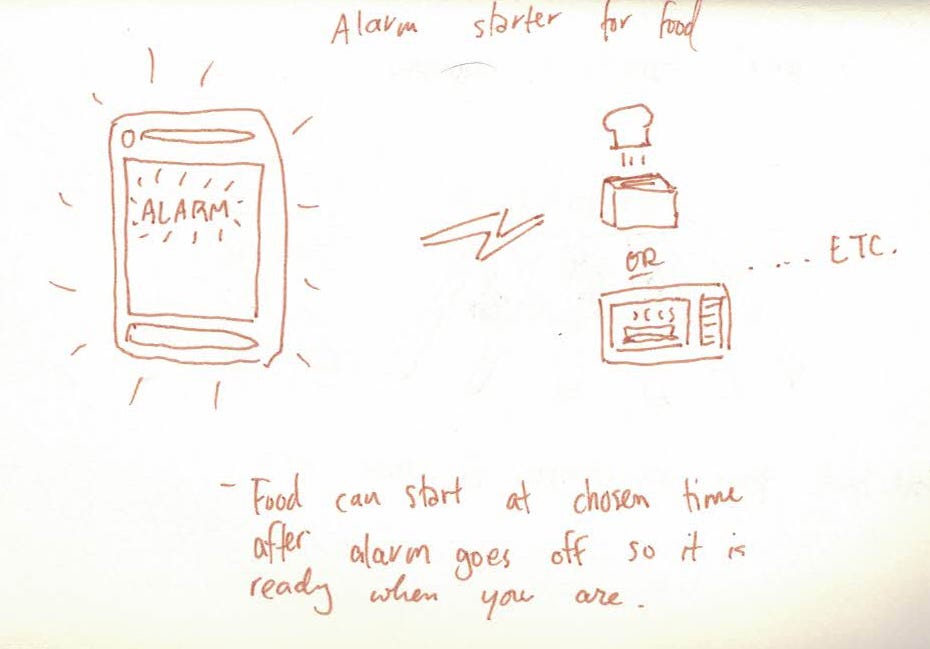 Alarm starter for food
ALARM
OR
.... ETC.
- Food can start at chosen time
after alarm goes off so it is
ready when you are.